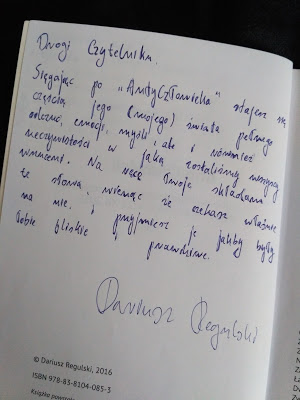 Drogi Czytelniku.
Sięgając po „AntyCzłowieka" stajesz się
częścią jego (mojego) świata pełnego
odczuć, emocji, myśli, ale i również
rzeczywistości w jaką zostaliśmy wszyscy
wrzuceni. Na ręce Twoje składam
te słowa, wierząc że czekasz właśnie
na nie, i przyjmiesz je jakby były
Tobie bliskie i prawdziwe.
Dariusz Regulski
© Dariusz Regulski, 2016
ISBN 978-83-8104-085-3